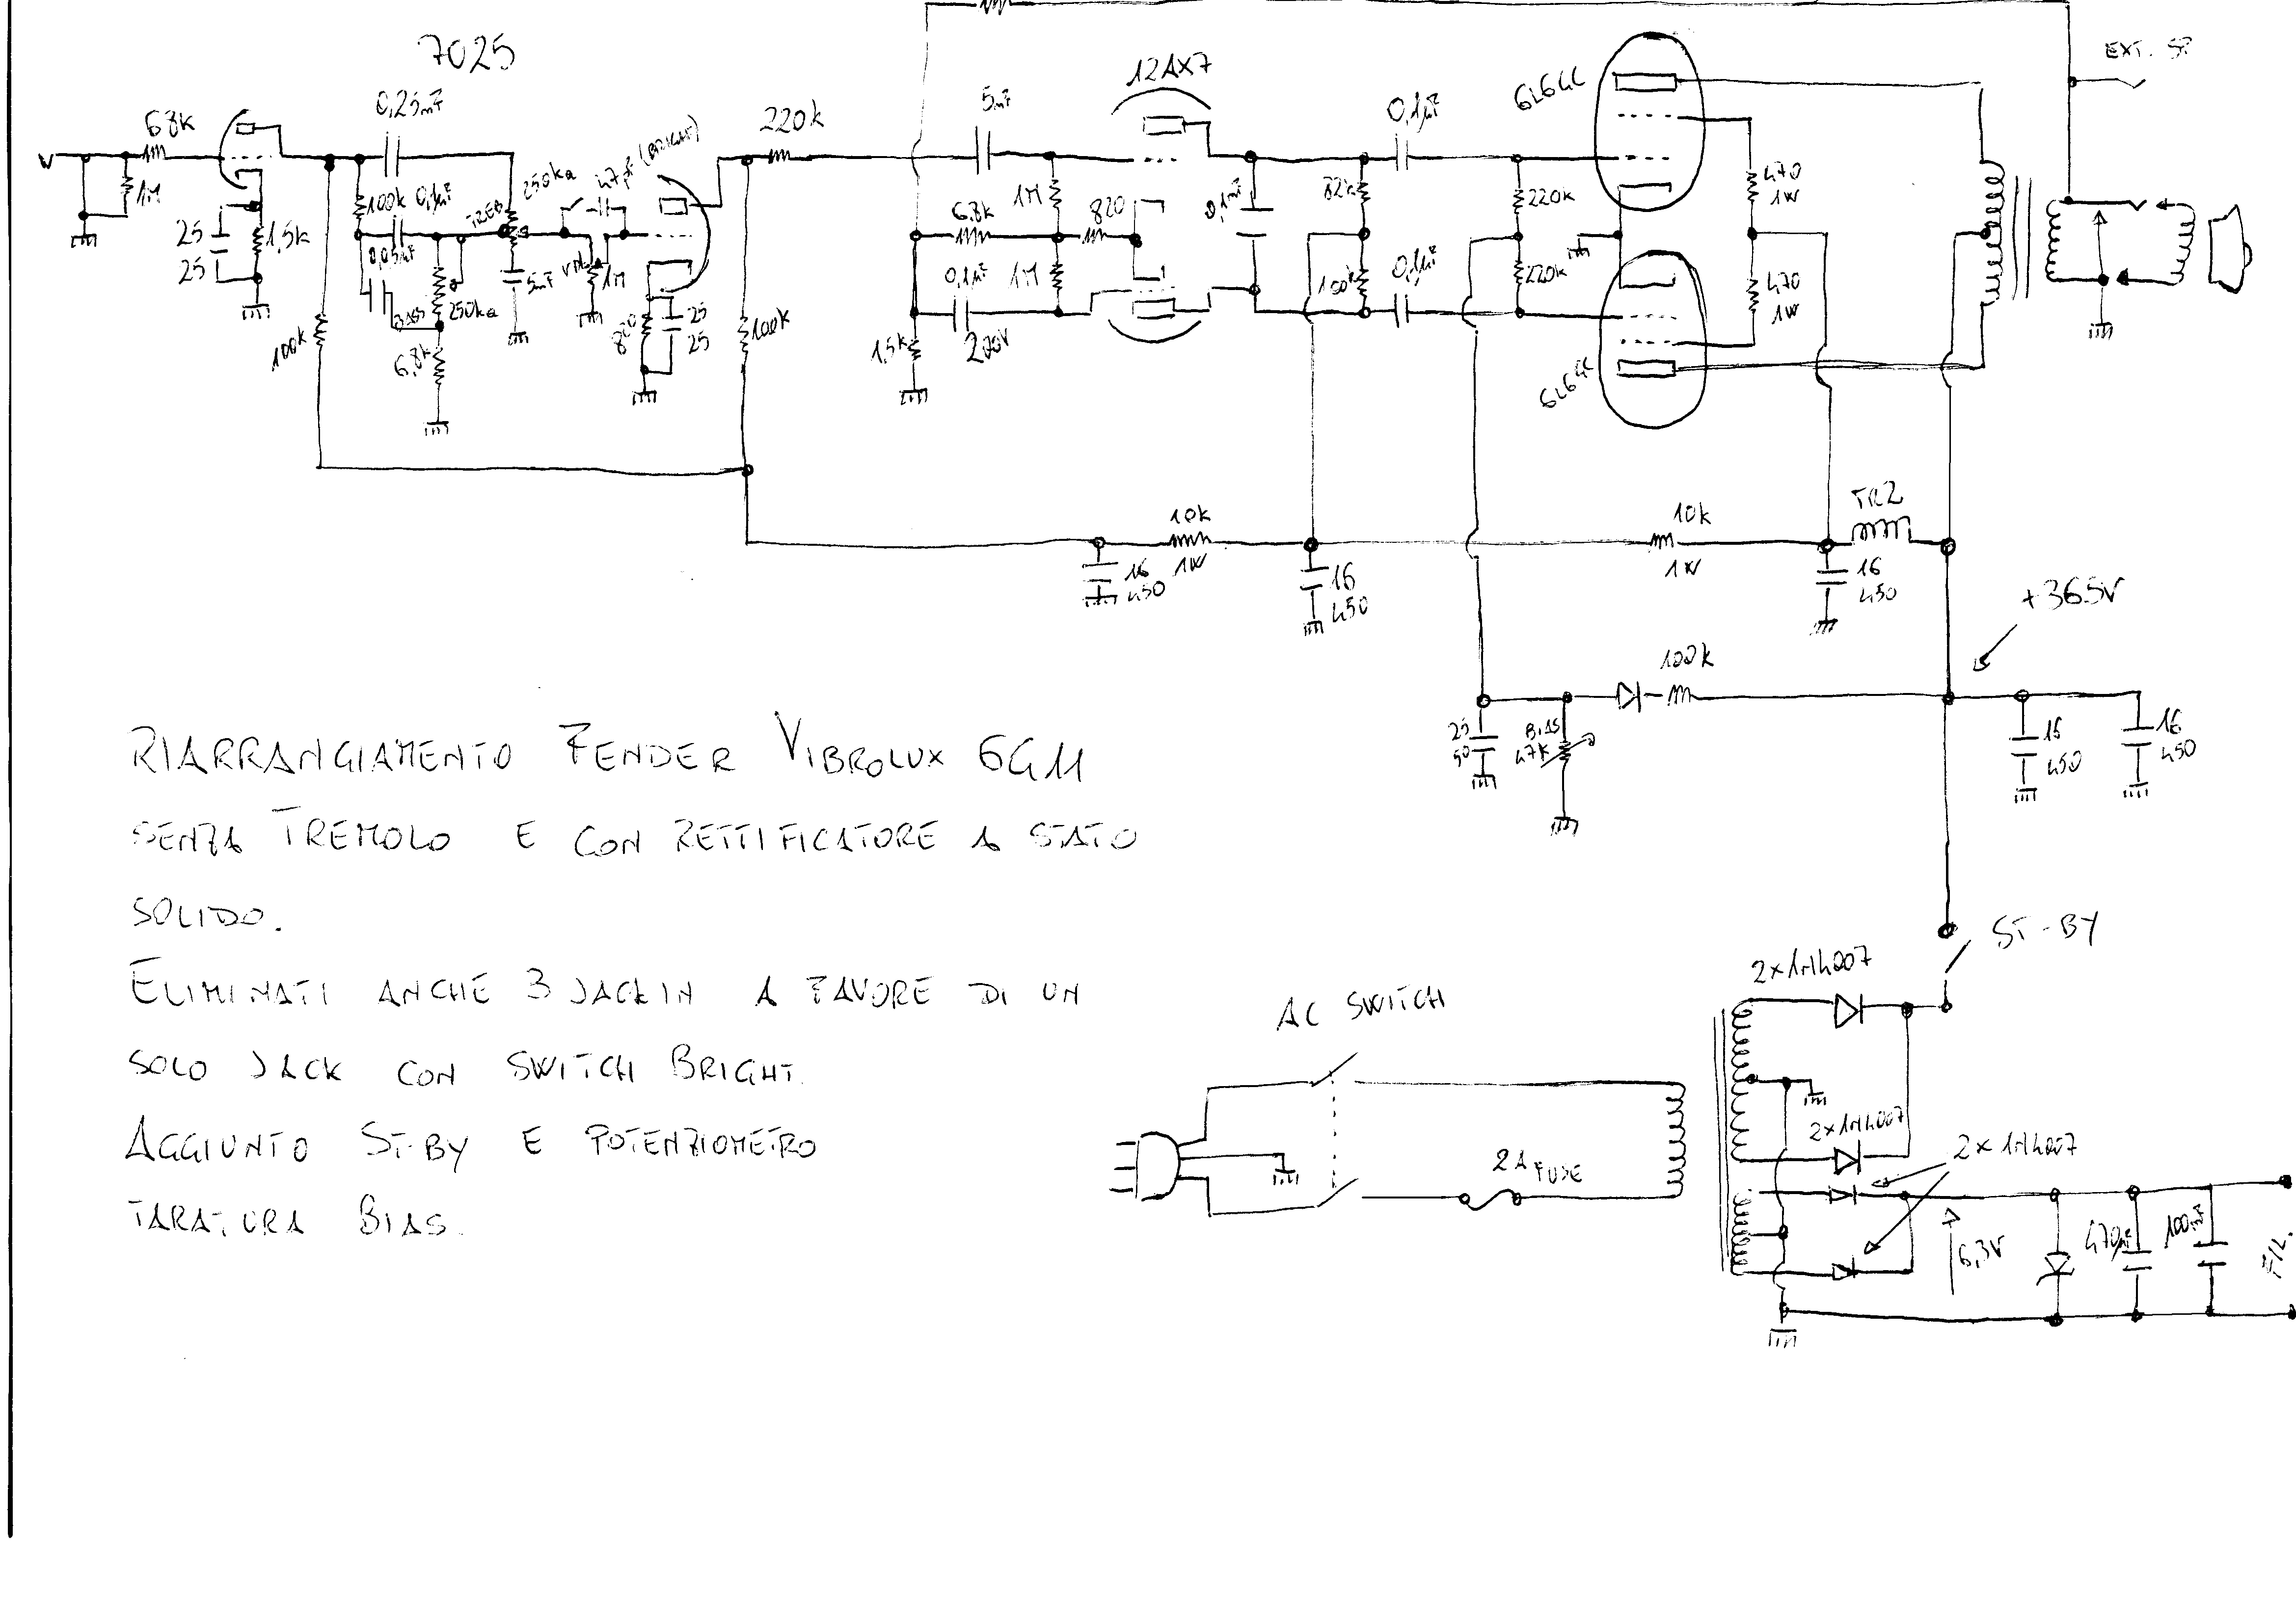 7025
12AX7
6L6GC
EXT. SP
68k
0,25mF
220k
5nF
0,1µF
1M
25
25
1,5k
100k
0,1µF
TREB
250ka
47pF (BRIGHT)
1M
6,8k
820
82k
220k
470
1W
100k
0,05µF
BASS
250ka
5nF
VOL
1M
820
25
25
100k
0,1µF
200V
1M
100k
0,1µF
220k
470
1W
6,8k
1,5k
6L6GC
10k
1W
10k
1W
TR2
16
450
16
450
16
450
+365V
100k
25
50
BIAS
47k
16
450
16
450
RIARRANGIAMENTO FENDER VIBROLUX 6G11
SENZA TREMOLO E CON RETTIFICATORE A STATO
SOLIDO.
ELIMINATI ANCHE 3 JACK IN A FAVORE DI UN
SOLO JACK CON SWITCH BRIGHT.
AGGIUNTO ST-BY E POTENZIOMETRO
TARATURA BIAS.
ST-BY
2x1N4007
AC SWITCH
2x1N4007
2x1N4007
2A FUSE
6,3V
470µF
100nF
FIL.